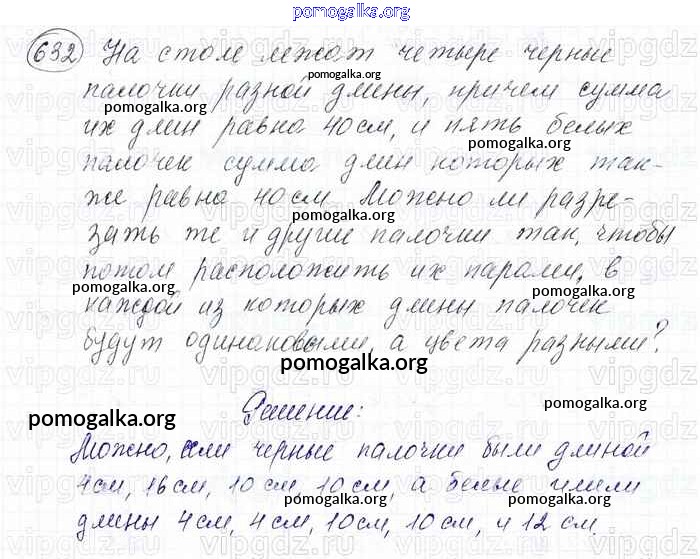 pomogalka.org
632 На столе лежат четыре черные
pomogalka.org
палочки разной длины, причем сумма
pomogalka.org pomogalka.org
их длин равна 40 см, и пять белых
pomogalka.org
палочек сумма длин которых так-
же равна 40 см. Можно ли разре-
pomogalka.org
зать те и другие палочки так, чтобы
потом расположить их парами, в
pomogalka.org pomogalka.org
каждой из которых длины палочек
будут одинаковыми, а цвета разными?
pomogalka.org
Решение:
pomogalka.org pomogalka.org
Можно, если черные палочки были длиной
4 см, 16 см, 10 см, 10 см, а белые имели
pomogalka.org pomogalka.org
длины 4 см, 4 см, 10 см, 10 см, и 12 см.